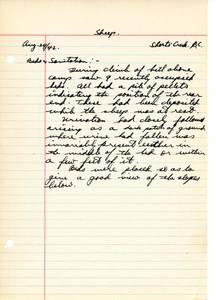 Sheep.
Aug 29/42. Shorts Creek, B.C.
Beds & Sanitation:-
During climb of hill above
camp saw 9 recently occupied
beds. All had a pile of pellets
indicating the position of the rear
end. These had been deposited
while the sheep was at rest.
Urination had closely followed
arising as a bare patch of ground
where urine had fallen was
invariably present either in
the middle of the bed or within
a few feet of it.
Beds were placed so as to
give a good view of the slopes
below.